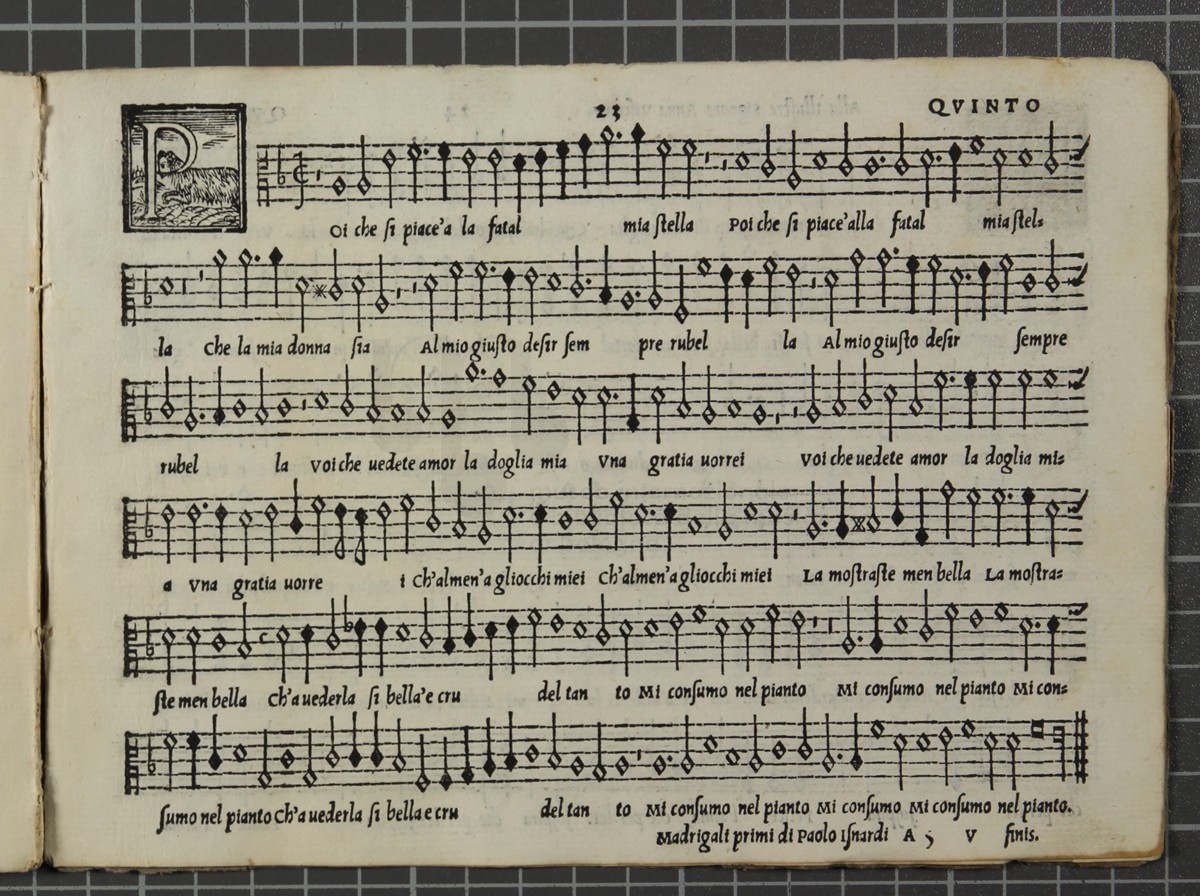 23 QVINTO
POi che ſi piace'a la fatal mia ſtella Poi che ſi piace'alla fatal mia ſtel=
la Che la mia donna ſia Al mio giuſto deſir ſem pre rubel la Al mio giuſto deſir ſempre
rubel la Voi che uedete amor la doglia mia Vna gratia uorrei Voi che uedete amor la doglia mi=
a Vna gratia uorre i Ch'almen'a gliocchi miei Ch'almen'a gliocchi miei La moſtraſte men bella La moſtra=
ſte men bella Ch'a uederla ſi bella'e cru del tan to Mi conſumo nel pianto Mi conſumo nel pianto Mi con=
ſumo nel pianto Ch'a uederla ſi bella e cru del tan to Mi conſumo nel pianto Mi conſumo Mi conſumo nel pianto.
Madrigali primi di Paolo Iſnardi A 5 V finis.